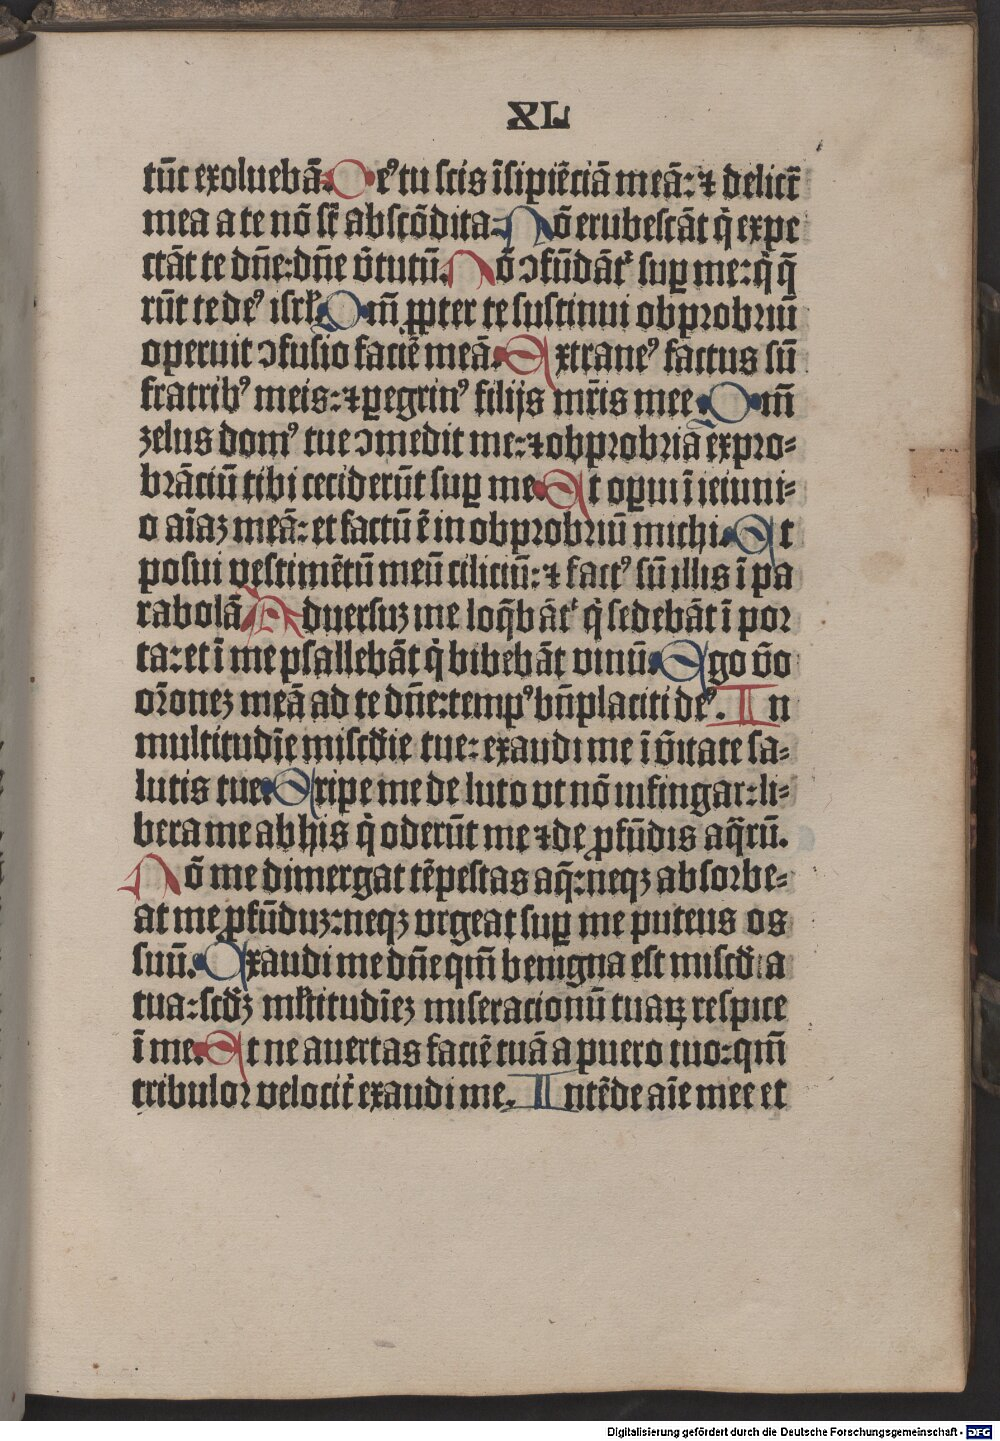 XL
tūc exoluebā. De⁹ tu scis īsipiēciā meā: ⁊ delictˉ
mea a te nō st̄ abscōdita. Nō erubescāt q̇ expe
ctāt te dn̄e: dn̄e v̄tutū. Nō ɔfūdāt͛ suꝑ me: q̇ q̄
rūt te de⁹ isrl̄. Qm̄ ꝓpter te sustinui obprobriū
operuit ɔfusio faciē meā. Extrane⁹ factus sū
fratrib⁹ meis: ⁊ ꝑegrin⁹ filijs mr̄is mee. Qm̄
zelus dom⁹ tue ɔmedit me: ⁊ obprobria expro⸗
brāciū tibi ceciderūt suꝑ me. Et oꝑui ī ieiuni⸗
o aīaꝫ meā: et factū ē in obprobriū michi. Et
posui vestimētū meū ciliciū: ⁊ fact⁹ sū illis ī pa
rabolā. Aduersuꝫ me loq̄bāt͛ q̇ sedebāt ī por
ta: et ī me psallebāt q̇ bibebāt vinū. Ego v̄o
or̄oneꝫ meā ad te dn̄e: temp⁹ bn̄placiti de⁹. In
multitudīe misc̄die tue: exaudi me ī v̄itate sa⸗
lutis tue. Eripe me de luto vt nō infingar: li⸗
bera me ab his q̇ oderūt me ⁊ de ꝓfūdis aq̄rū.
Nō me dimergat tēpestas aq̄: neqꝫ absorbe⸗
at me ꝓfūduꝫ: neqꝫ vrgeat suꝑ me puteus os
suū. Exaudi me dn̄e qm̄ benigna est misc̄dia
tua: scd̄ꝫ ml̄titudīeꝫ miseracionū tuaꝝ respice
ī me. Et ne auertas faciē tuā a puero tuo: qm̄
tribulor velocit̄ exaudi me. Intēde aīe mee et
Digitalisierung gefördert durch die Deutsche Forschungsgemeinschaft - DFG